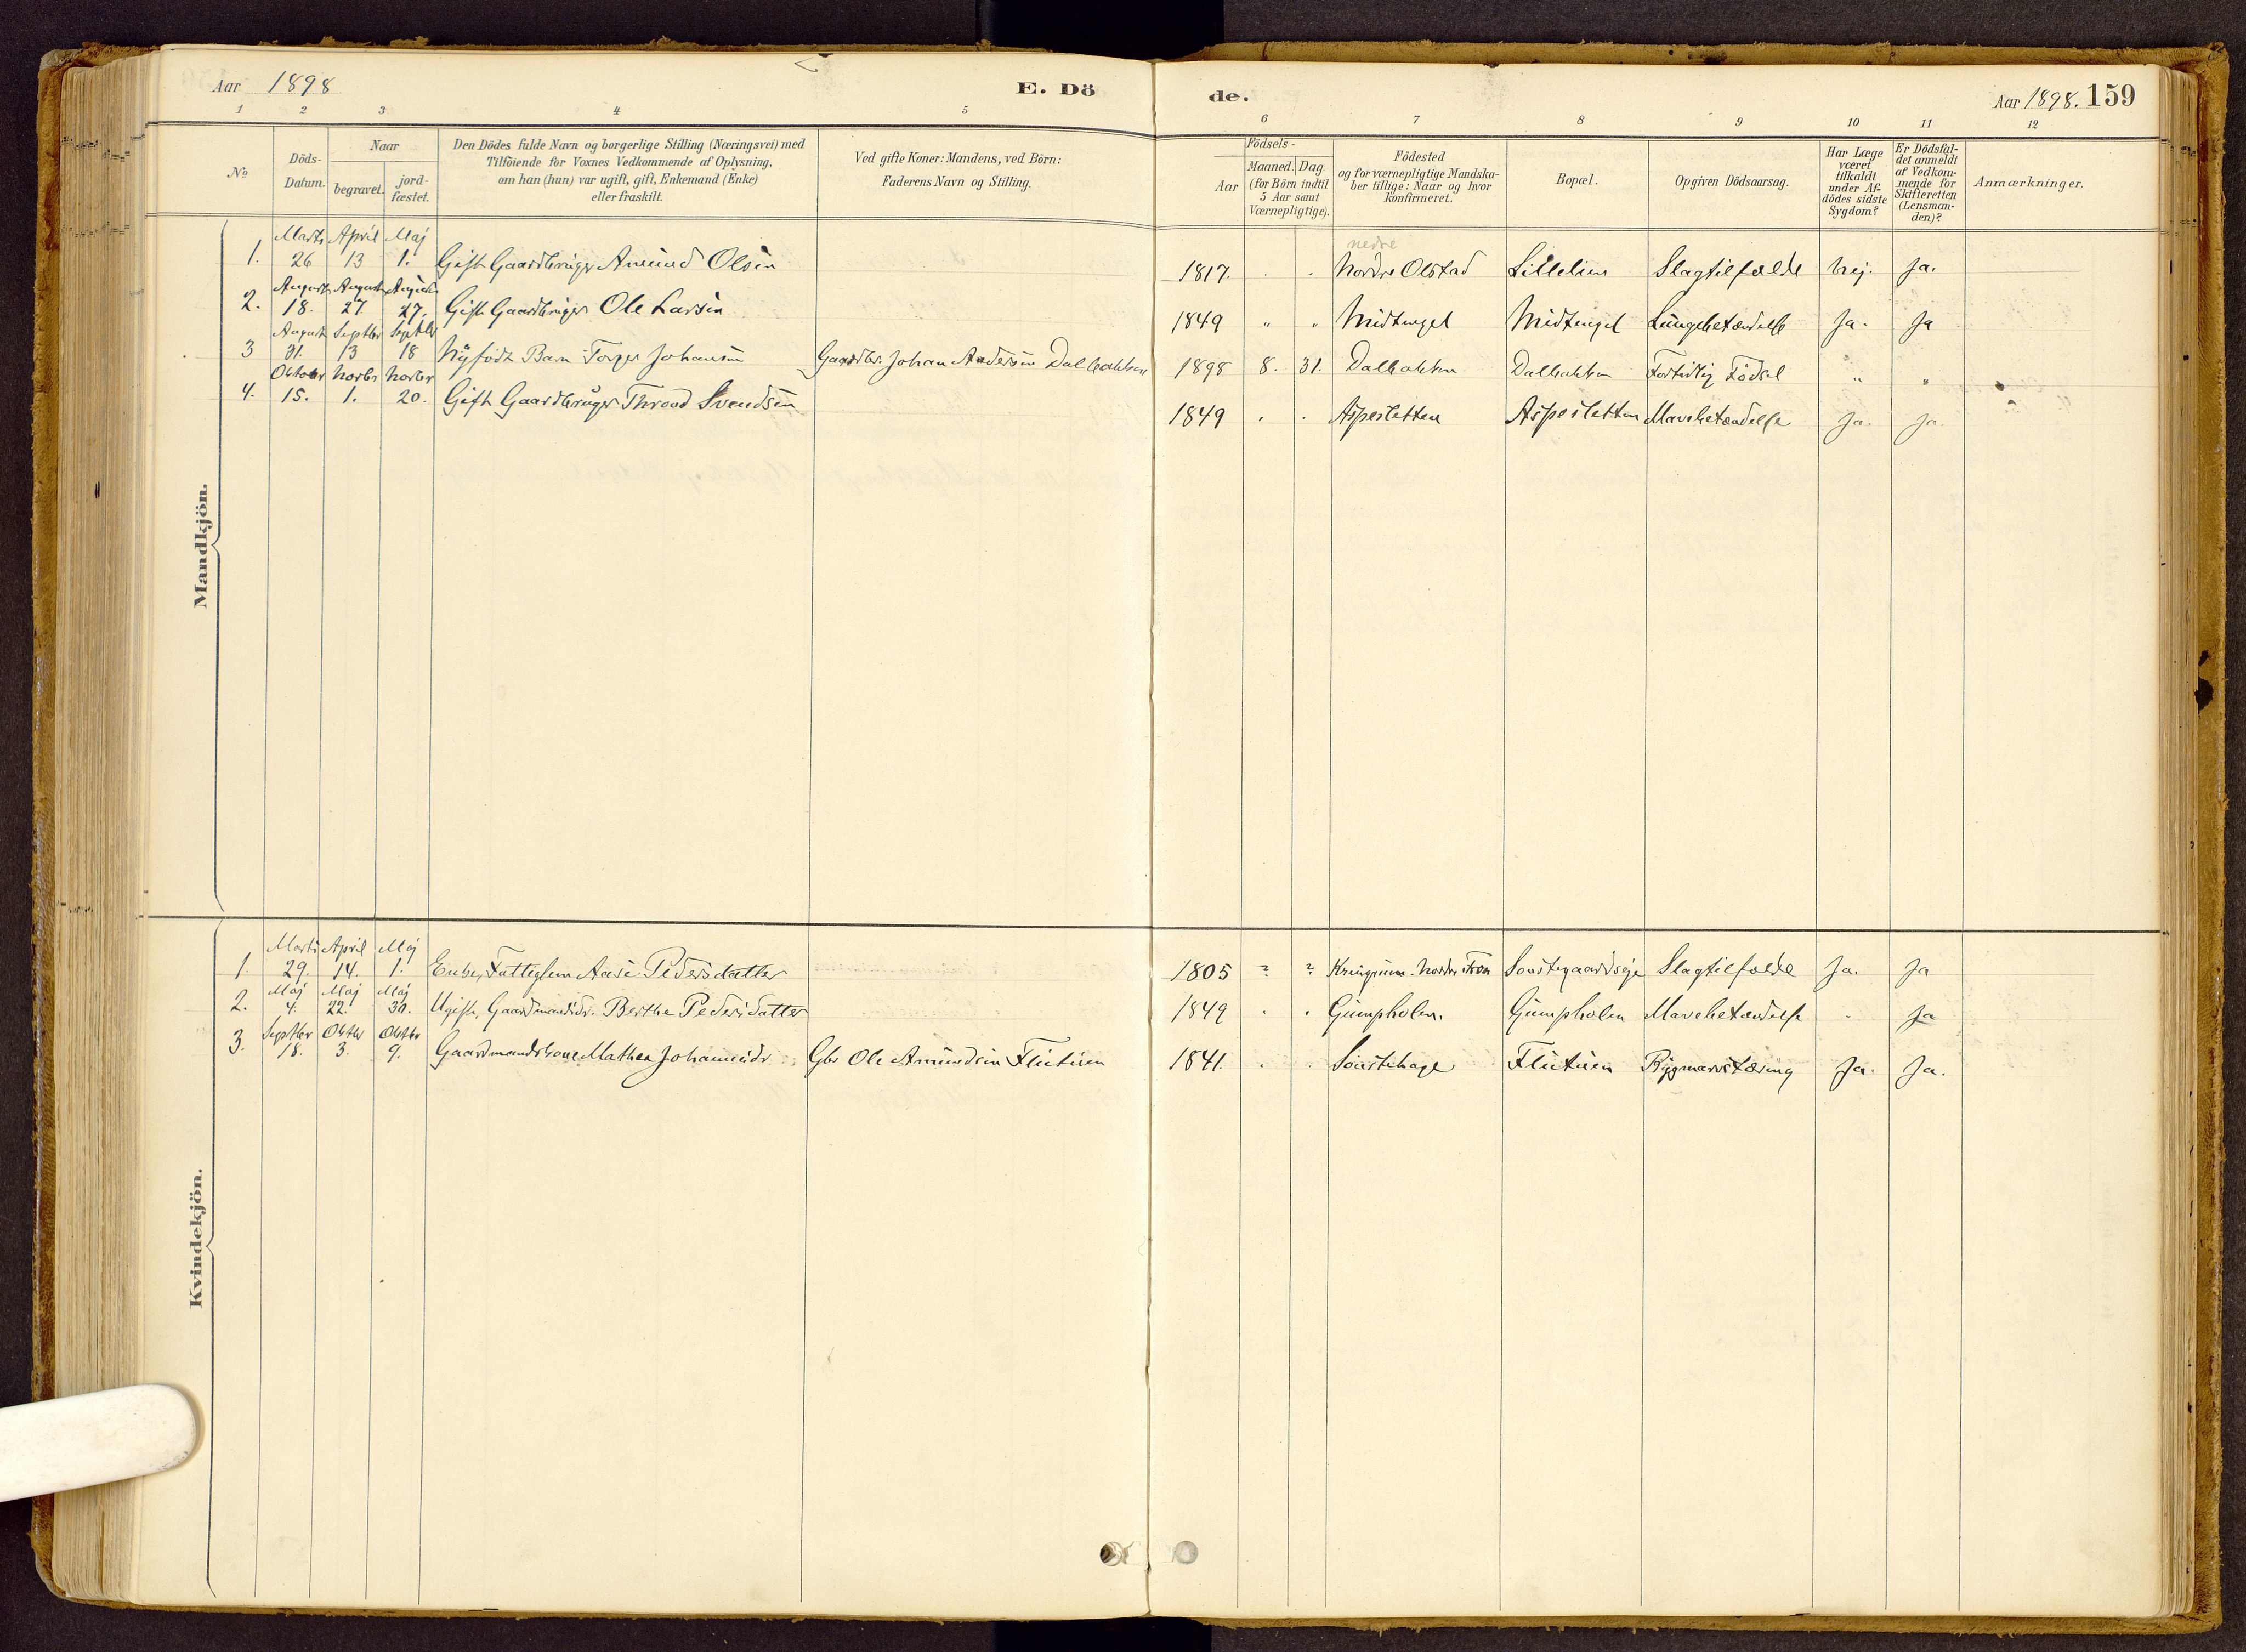 Aar 1898 E. Dö de. Aar 1898. 159
1 2 3 4 5 6 7 8 9 10 11 12
No
Döds-Datum.
Naar
begravet. jord-fæstet.
Den Dödes fulde Navn og borgerlige Stilling (Næringsvei) med
Tilföiende for Voxnes Vedkommende af Oplysning,
om han (hun) var ugift, gift, Enkemand (Enke)
eller fraskilt.
Ved gifte Koner: Mandens, ved Börn:
Faderens Navn og Stilling.
Födsels-
Aar
Maaned. Dag.
(for Börn indtil
5 Aar samt
Værnepligtige).
Födested
og for værnepligtige Mandska-
ber tillige: Naar og hvor
konfirmeret.
Bopæl.
Opgiven Dödsaarsag.
Har Læge
været
tilkaldt
under Af-
dödes sidste
Sygdom?
Er Dödsfal-
det anmeldt
af Vedkom-
mende for
Skifteretten
(Lensman-
den)?
Anmærkninger.
Mandkjön.
Marts April Maj nedre
1. 26 13 1. Gift Gaardbruger Amund Olsen 1817. . . Nordre Olstad Lillelien Slagtilfælde Nej. Ja.
August August August
2. 18. 27. 27. Gift Gaardbruger Ole Larsen 1849 " " Midtengel Midtengel Lungebetændelse Ja. Ja
August Septbr Septbr
3 31. 13 18 Nÿfödt Barn Torger Johansen Gaardbr. Johan Andersen Dalbakken 1898 8. 31. Dalbakken Dalbakken Fortidlig Födsel " "
Oktober Novbr Novbr
4. 15. 1. 20. Gift Gaardbruger Throod Svendsen 1849 . . Aspesletten Aspesletten Mavebetændelse Ja. Ja.
Kvindekjön.
Marts April Maj
1. 29. 14. 1. Enke, Fattiglem Aase Pedersdatter 1805 ? ? Nordre Fron Slagtilfælde Ja. Ja
Maj Maj Maj
2. 4. 22. 30. Ugift, Gaardmandsdr. Berthe Pedersdatter 1849 . . Gumpholen. Gumpholen Mavebetændelse - Ja
Septbr Oktbr Oktbr
3. 18. 3. 9. Gaardmandskone Mathea Johannesdr. Gbr Ole Amundsen Flutuen 1841. . . Soustehage Flutuen Rygmarvstæring Ja. Ja.